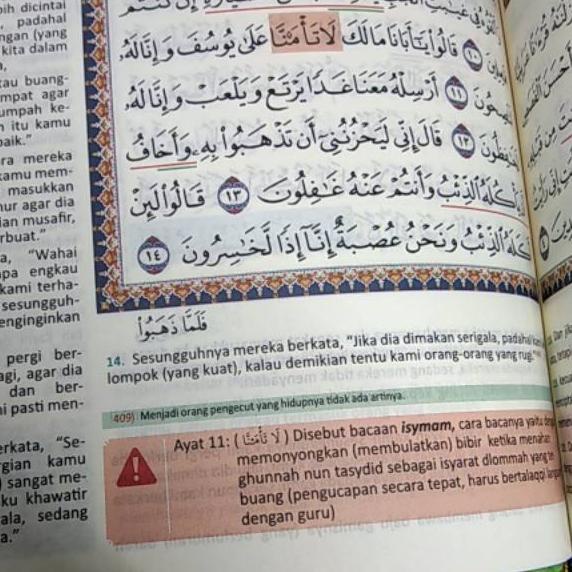 ih dicintai
padahal
ngan (yang
kita dalam
au buang-
mpat agar
umpah ke-
itu kamu
baik."
ra mereka
kamu mem-
masukkan
ur agar dia
ian musafir,
rbuat."
a, "Wahai
pa engkau
kami terha-
sesungguh-
enginginkan
pergi ber-
agi, agar dia
dan ber-
i pasti men-
erkata, "Se-
gian kamu
sangat me-
ku khawatir
ala, sedang
a."
قَالُوا يَٰٓأَبَانَا مَالَكَ لَا تَأْمَ۫نَّا عَلَىٰ يُوسُفَ وَإِنَّا لَهُۥ
١١ أَرْسِلْهُ مَعَنَا غَدًا يَرْتَعْ وَيَلْعَبْ وَإِنَّا لَهُۥ
١٢ قَالَ إِنِّي لَيَحْزُنُنِيٓ أَن تَذْهَبُوا بِهِۦ وَأَخَافُ
الذِّئْبُ وَأَنتُمْ عَنْهُ غَٰفِلُونَ ١٣ قَالُوا لَئِنْ
الذِّئْبُ وَنَحْنُ عُصْبَةٌ إِنَّآ إِذًا لَّخَٰسِرُونَ ١٤
فَلَمَّا ذَهَبُوا
14. Sesungguhnya mereka berkata, "Jika dia dimakan serigala, padahal
lompok (yang kuat), kalau demikian tentu kami orang-orang yang rugi."
409) Menjadi orang pengecut yang hidupnya tidak ada artinya.
Ayat 11: (لَا تَأْمَ۫نَّا) Disebut bacaan isymam, cara bacanya yaitu
memonyongkan (membulatkan) bibir ketika menahan
ghunnah nun tasydid sebagai isyarat dlommah yang
buang (pengucapan secara tepat, harus bertalaqqi
dengan guru)